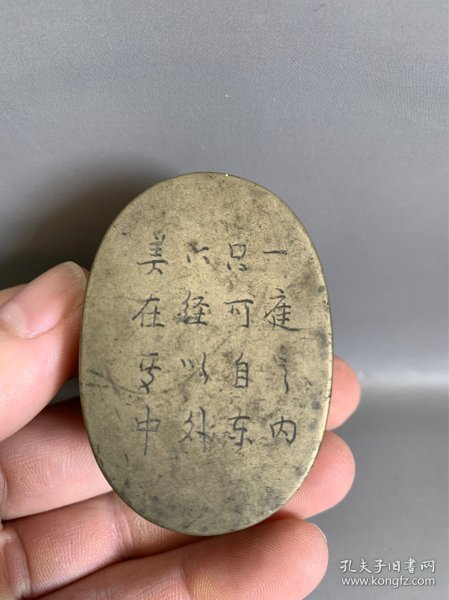 一寉之内
只可自东
六经以外
美在其中
孔夫子旧书网
www.kongfz.com